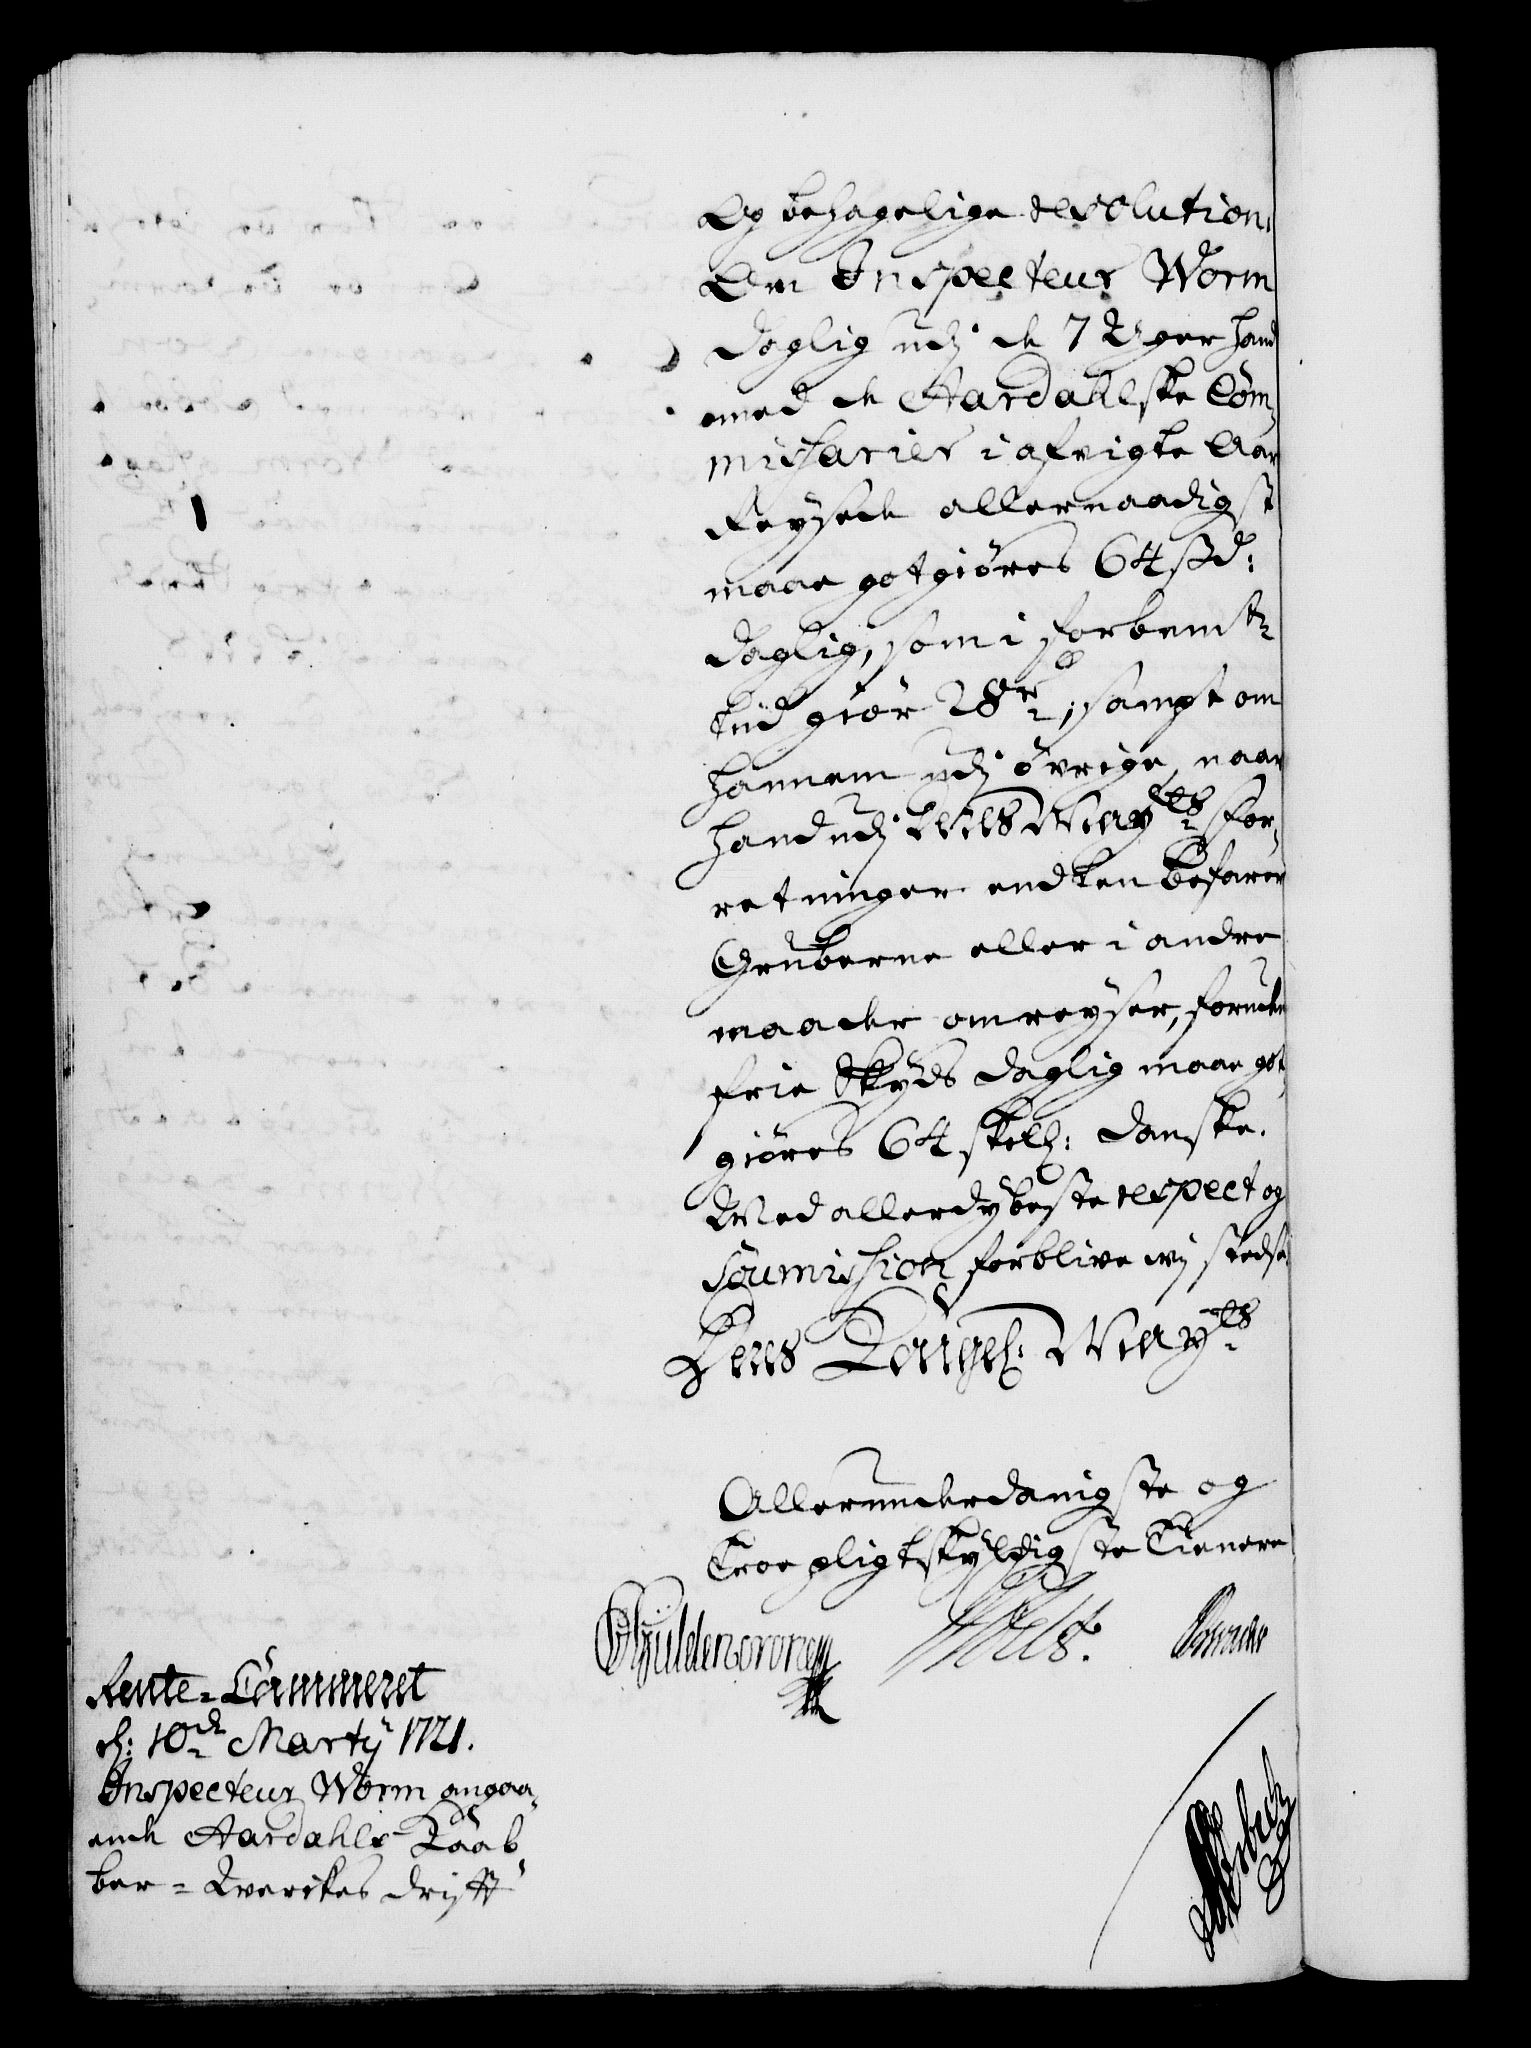 Og behagelige resolution,
Om Inspecteur Worm
daglig udj de 7 Uger hand
med de Aardahlske Com-
missarier i afvigte Aar
Reysede allernaadigst
maae gotgiøres 64 sz d:
daglig, som i forbemte
tiid giør 28 r, sampt om
hannem udj øvrige, naar
hand udj Deres Mayts for-
retninger endten befarer
Gruberne eller i andre
maader omreyser, foruden
frie Skyds daglig maae got-
giøres 64 skell: danske.
Med allerdybeste respect og
soumission forblive wj stedse
Deres Kongel: Mayts
Allerunderdanigste og
Troe pligtskyldigste Tienere
Güldencrone
Rente-Cammeret
d: 10de Martij 1721.
Inspecteur Worm angaa-
ende Aardahls Kaab-
ber-Werckes drifft